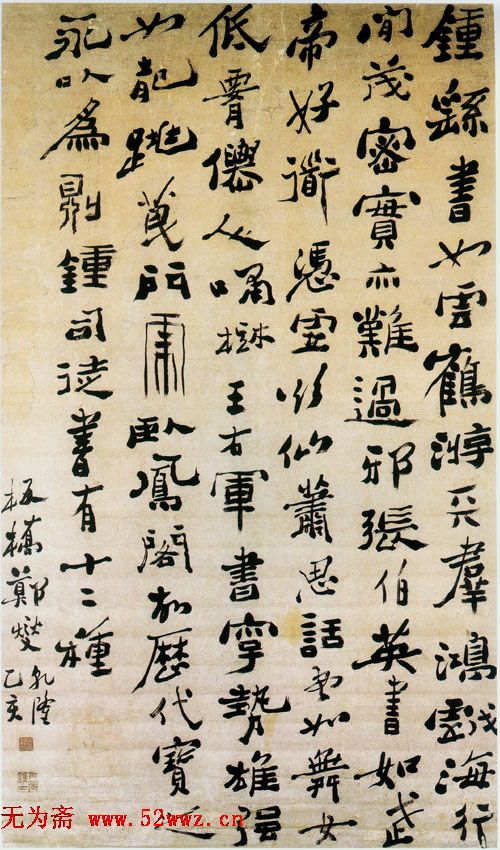 鍾繇書如雲鶴游天羣鴻戲海行
間茂密實亦難過邪張伯英書如武
帝好道憑虛欲仙蕭思話書如舞女
低腰僊人嘯樹王右軍書字勢雄强
如龍跳天門虎臥鳳閣故歷代寶之
永以爲訓鍾司徒書有十二種
板橋鄭燮
乾隆
乙亥
无为斋 www.52wwz.cn